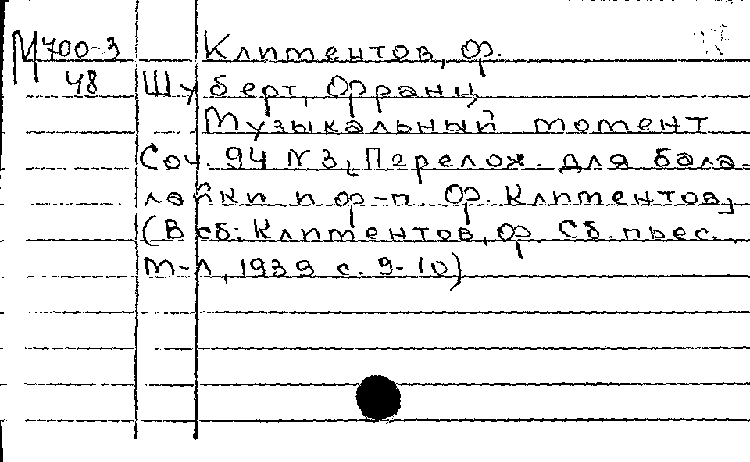 М700-3 Климентов, Ф.
48 Шуберт, Франц
Музыкальный момент
Соч. 94 N 3, Перелож. для бала-
лайки и ф-п. Ф. Климентов,
(В сб: Климентов, Ф. Сб. пьес.
М-Л, 1939 с. 9-10)